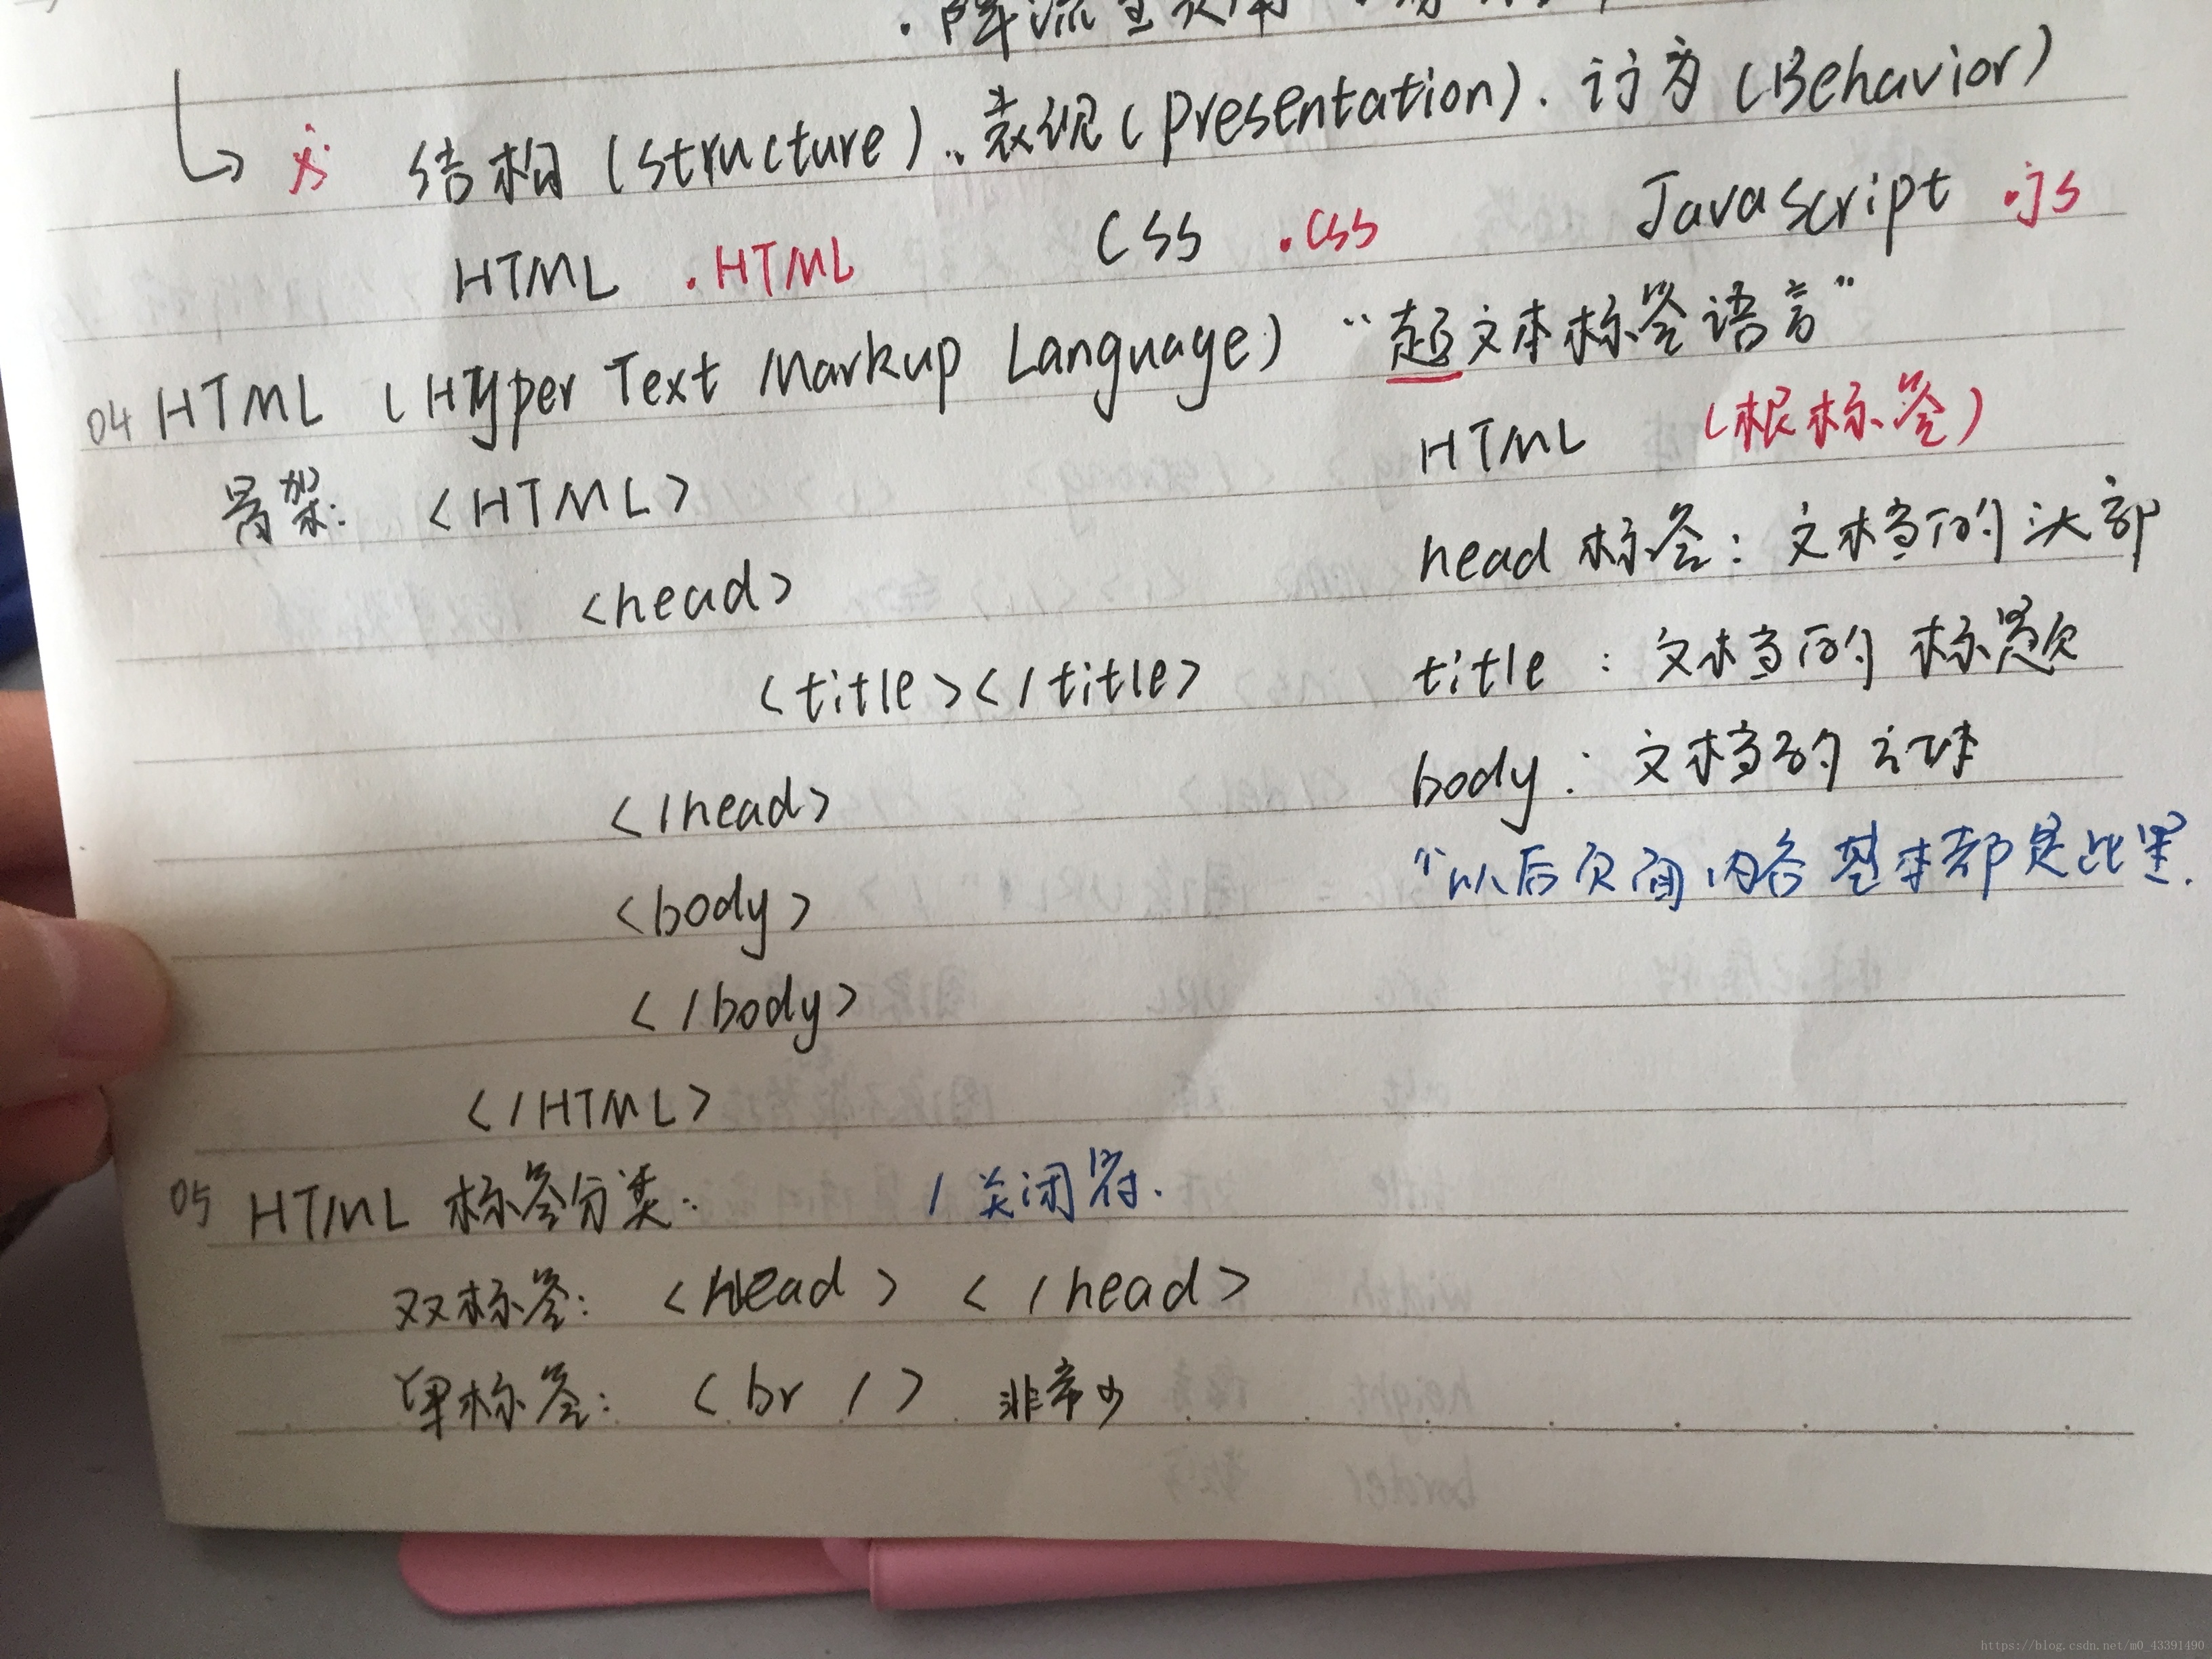 ·降流量费用
结构(structure)、表现(presentation). 行为(Behavior)
HTML .HTML CSS .CSS Javascript .js
04 HTML (HTyper Text Markup Language) "超文本标签语言"
骨架: <HTML> HTML (根标签)
<head> head 标签: 文档的头部
<title></title> title : 文档的标题
</head> body : 文档的主体
<body> "以后页面内容基本都是此里.
</body>
</HTML>
05 HTML 标签分类: / 关闭符.
双标签: <head> </head>
单标签: <br /> 非常少
https://blog.csdn.net/m0_43391490